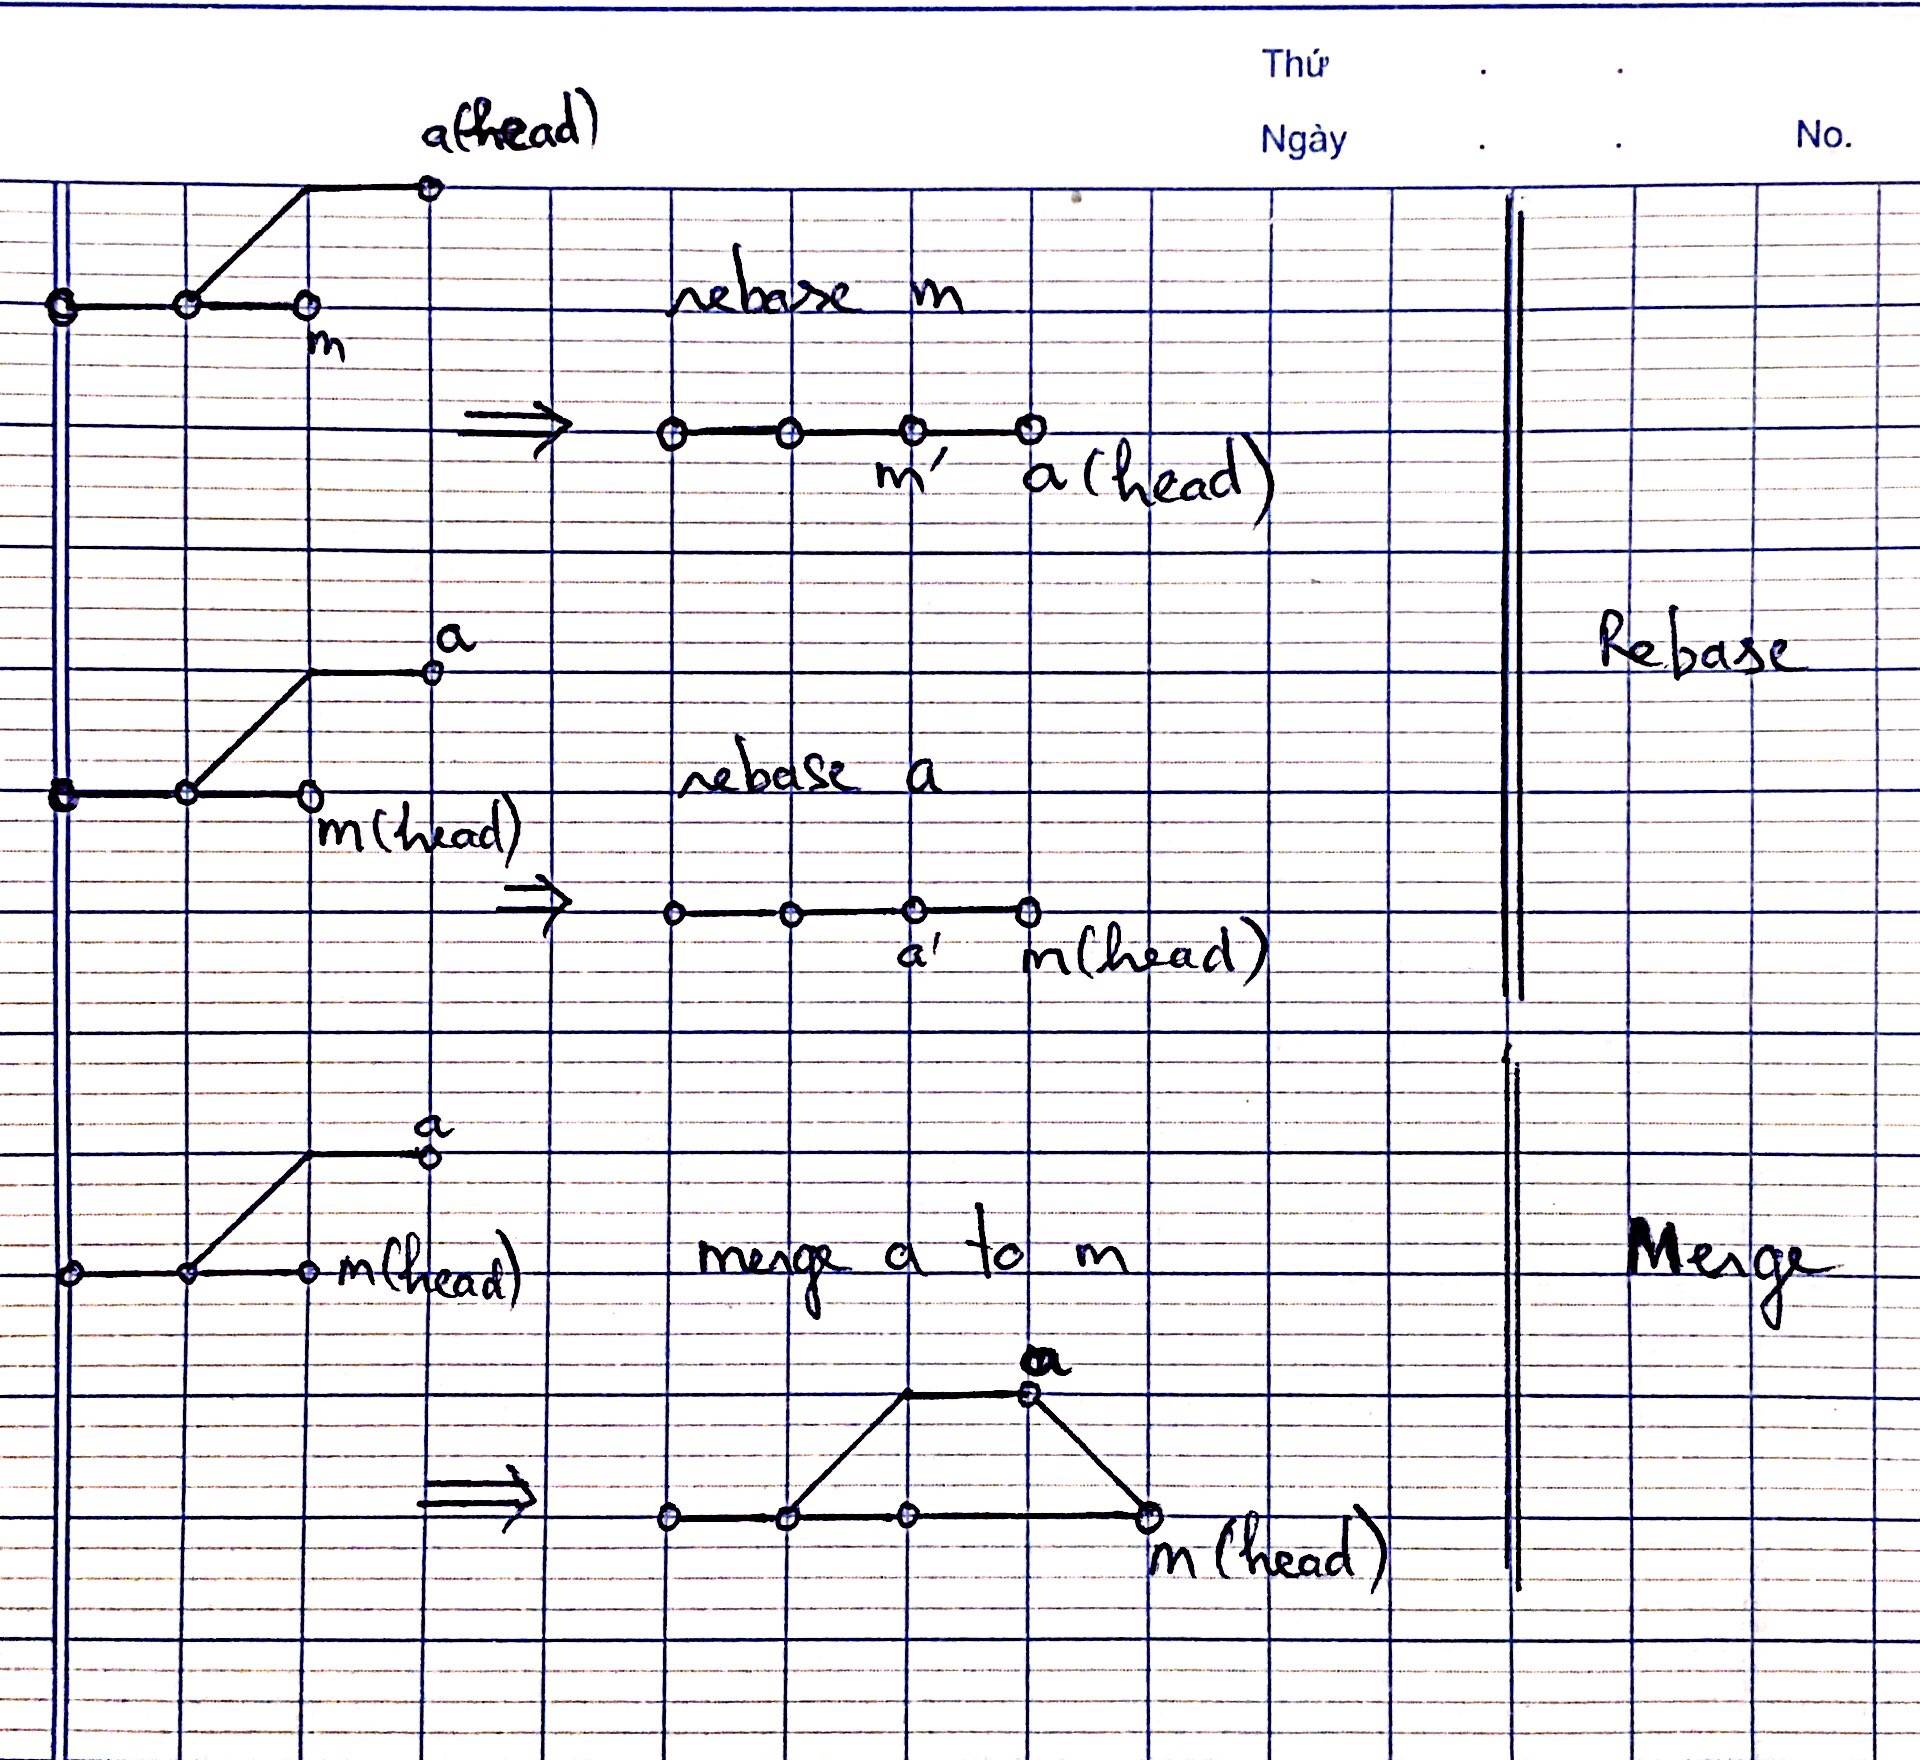 Thứ . .
Ngày . . No.
a(head)
m
rebase m
m' a (head)
a
m(head)
rebase a
a' m(head)
Rebase
a
m(head)
merge a to m
a
m (head)
Merge